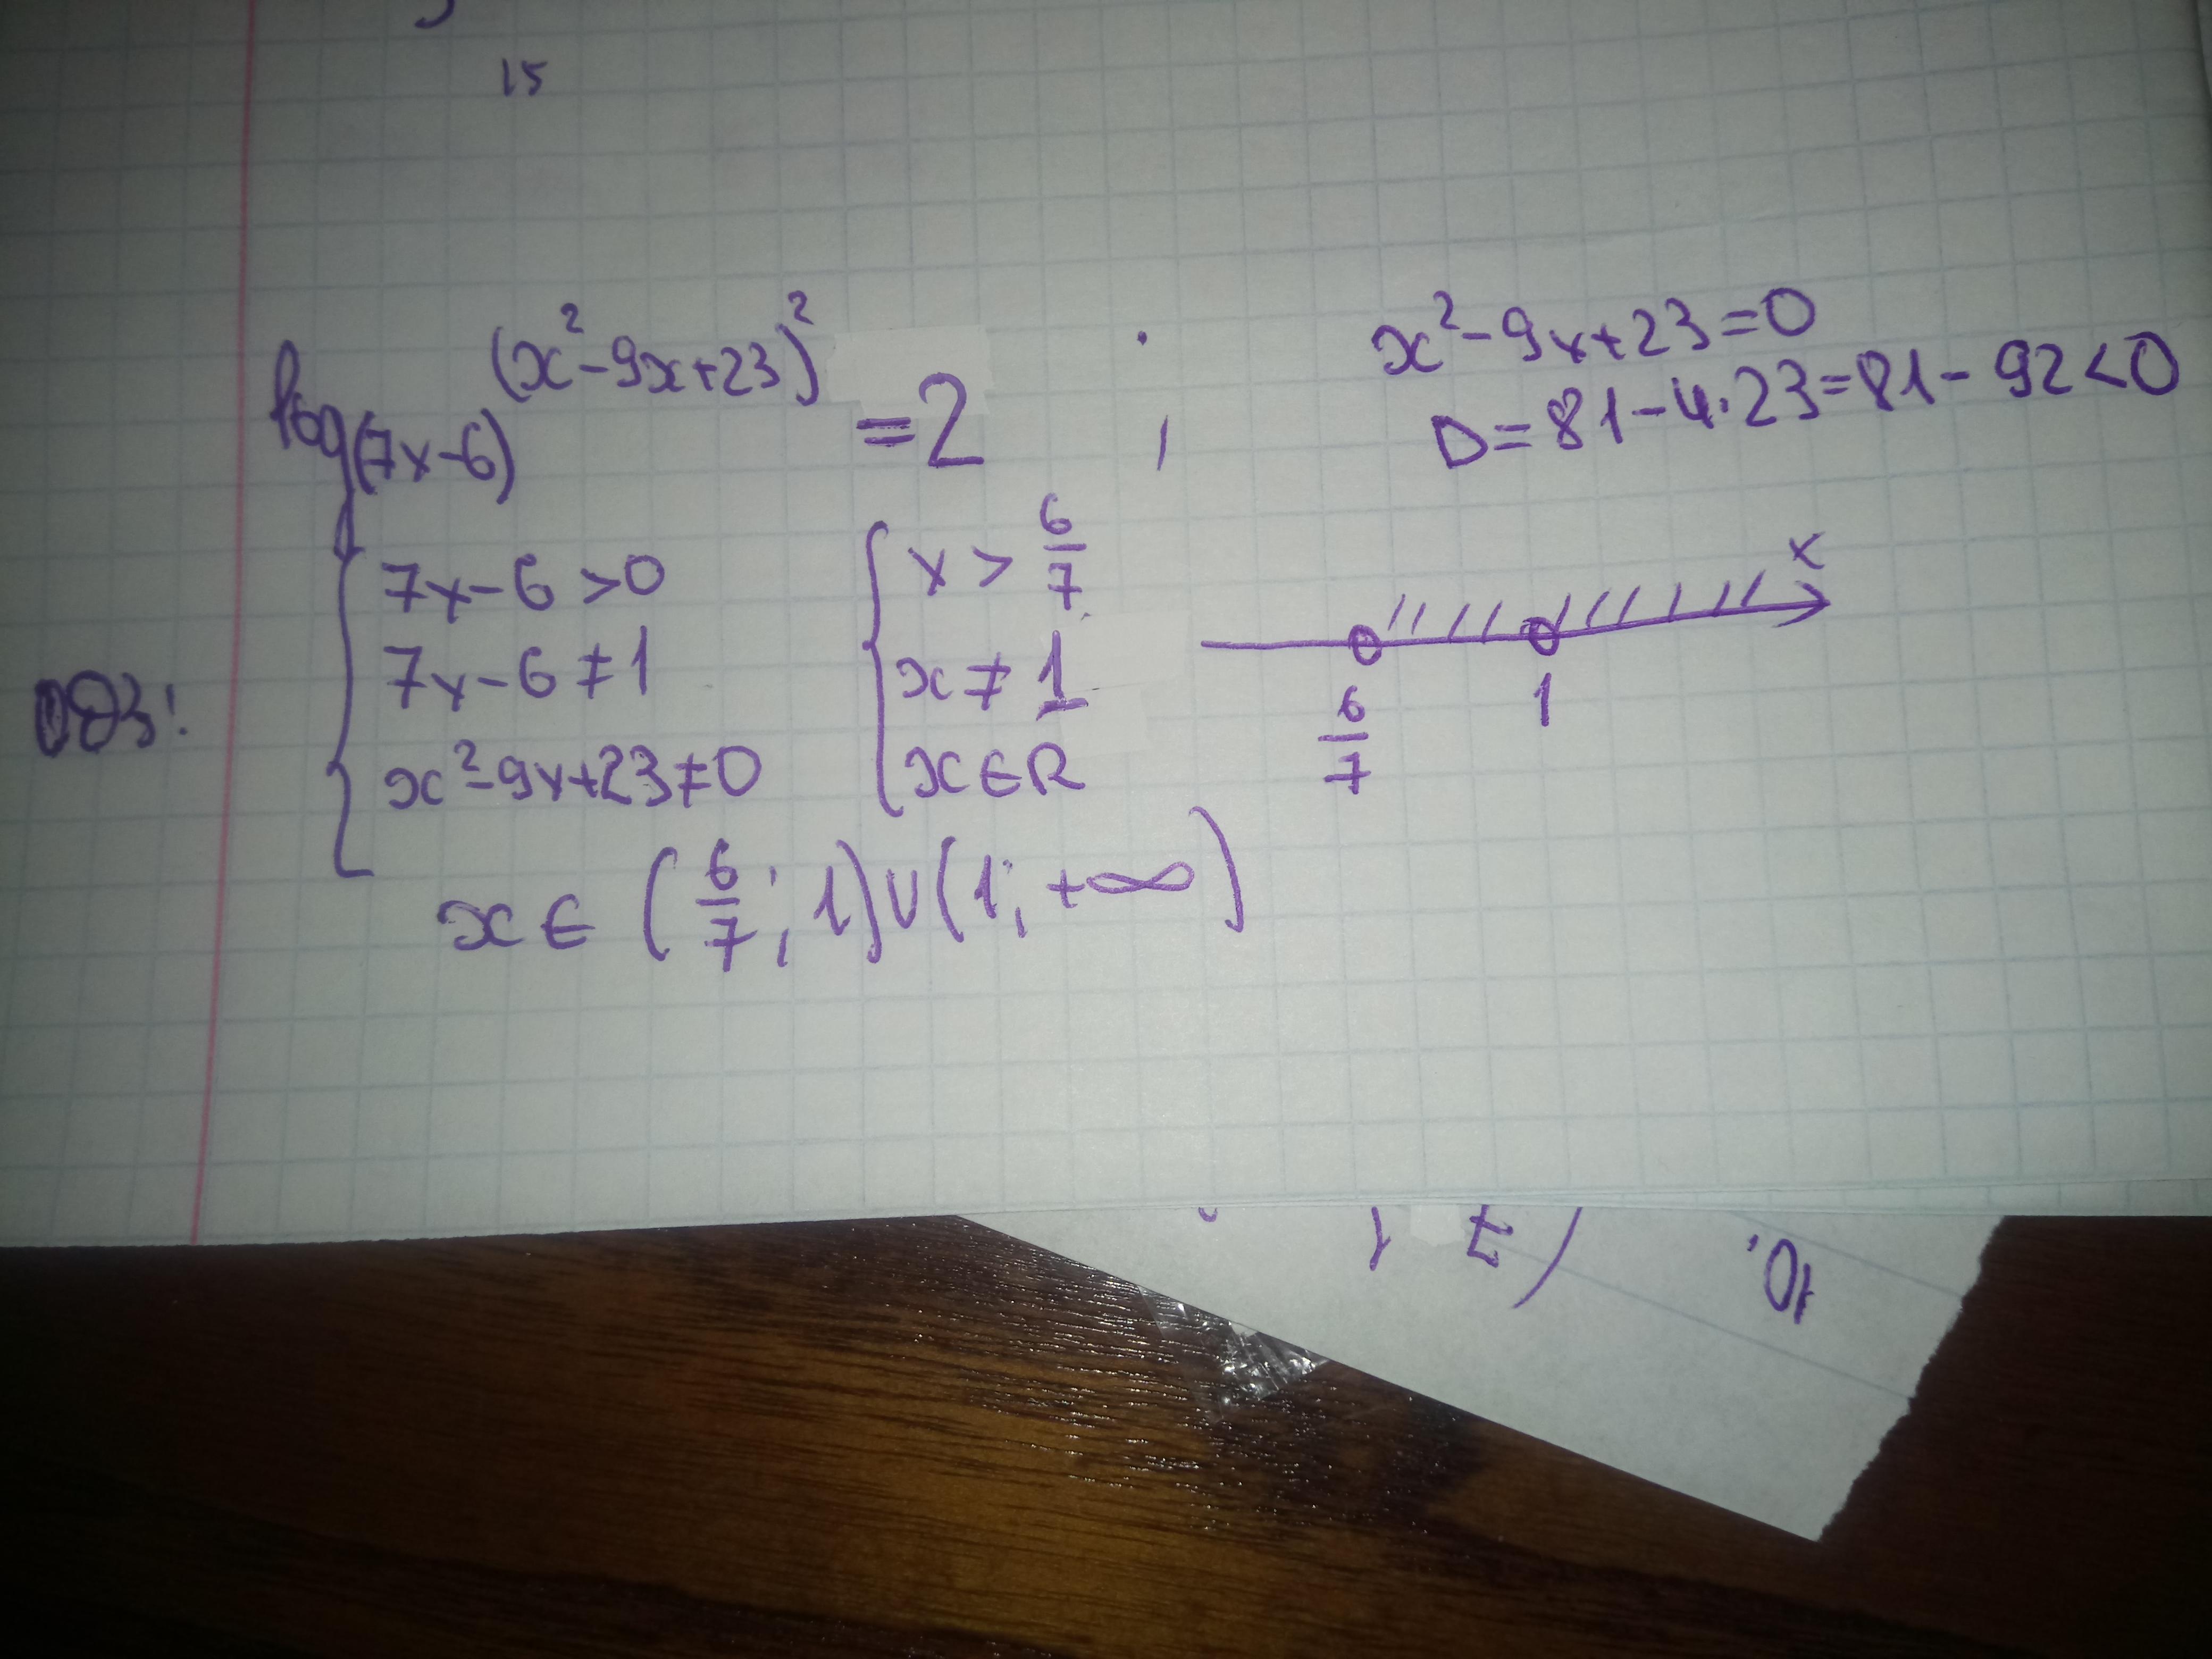 15
log_(7x-6) (x²-9x+23)² = 2 ;
x²-9x+23=0
D=81-4·23=81-92<0
ОДЗ:
7x-6>0
7x-6≠1
x²-9x+23≠0
x > 6/7
x ≠ 1
x∈R
x
6/7
1
x ∈ (6/7; 1)∪(1; +∞)
10.